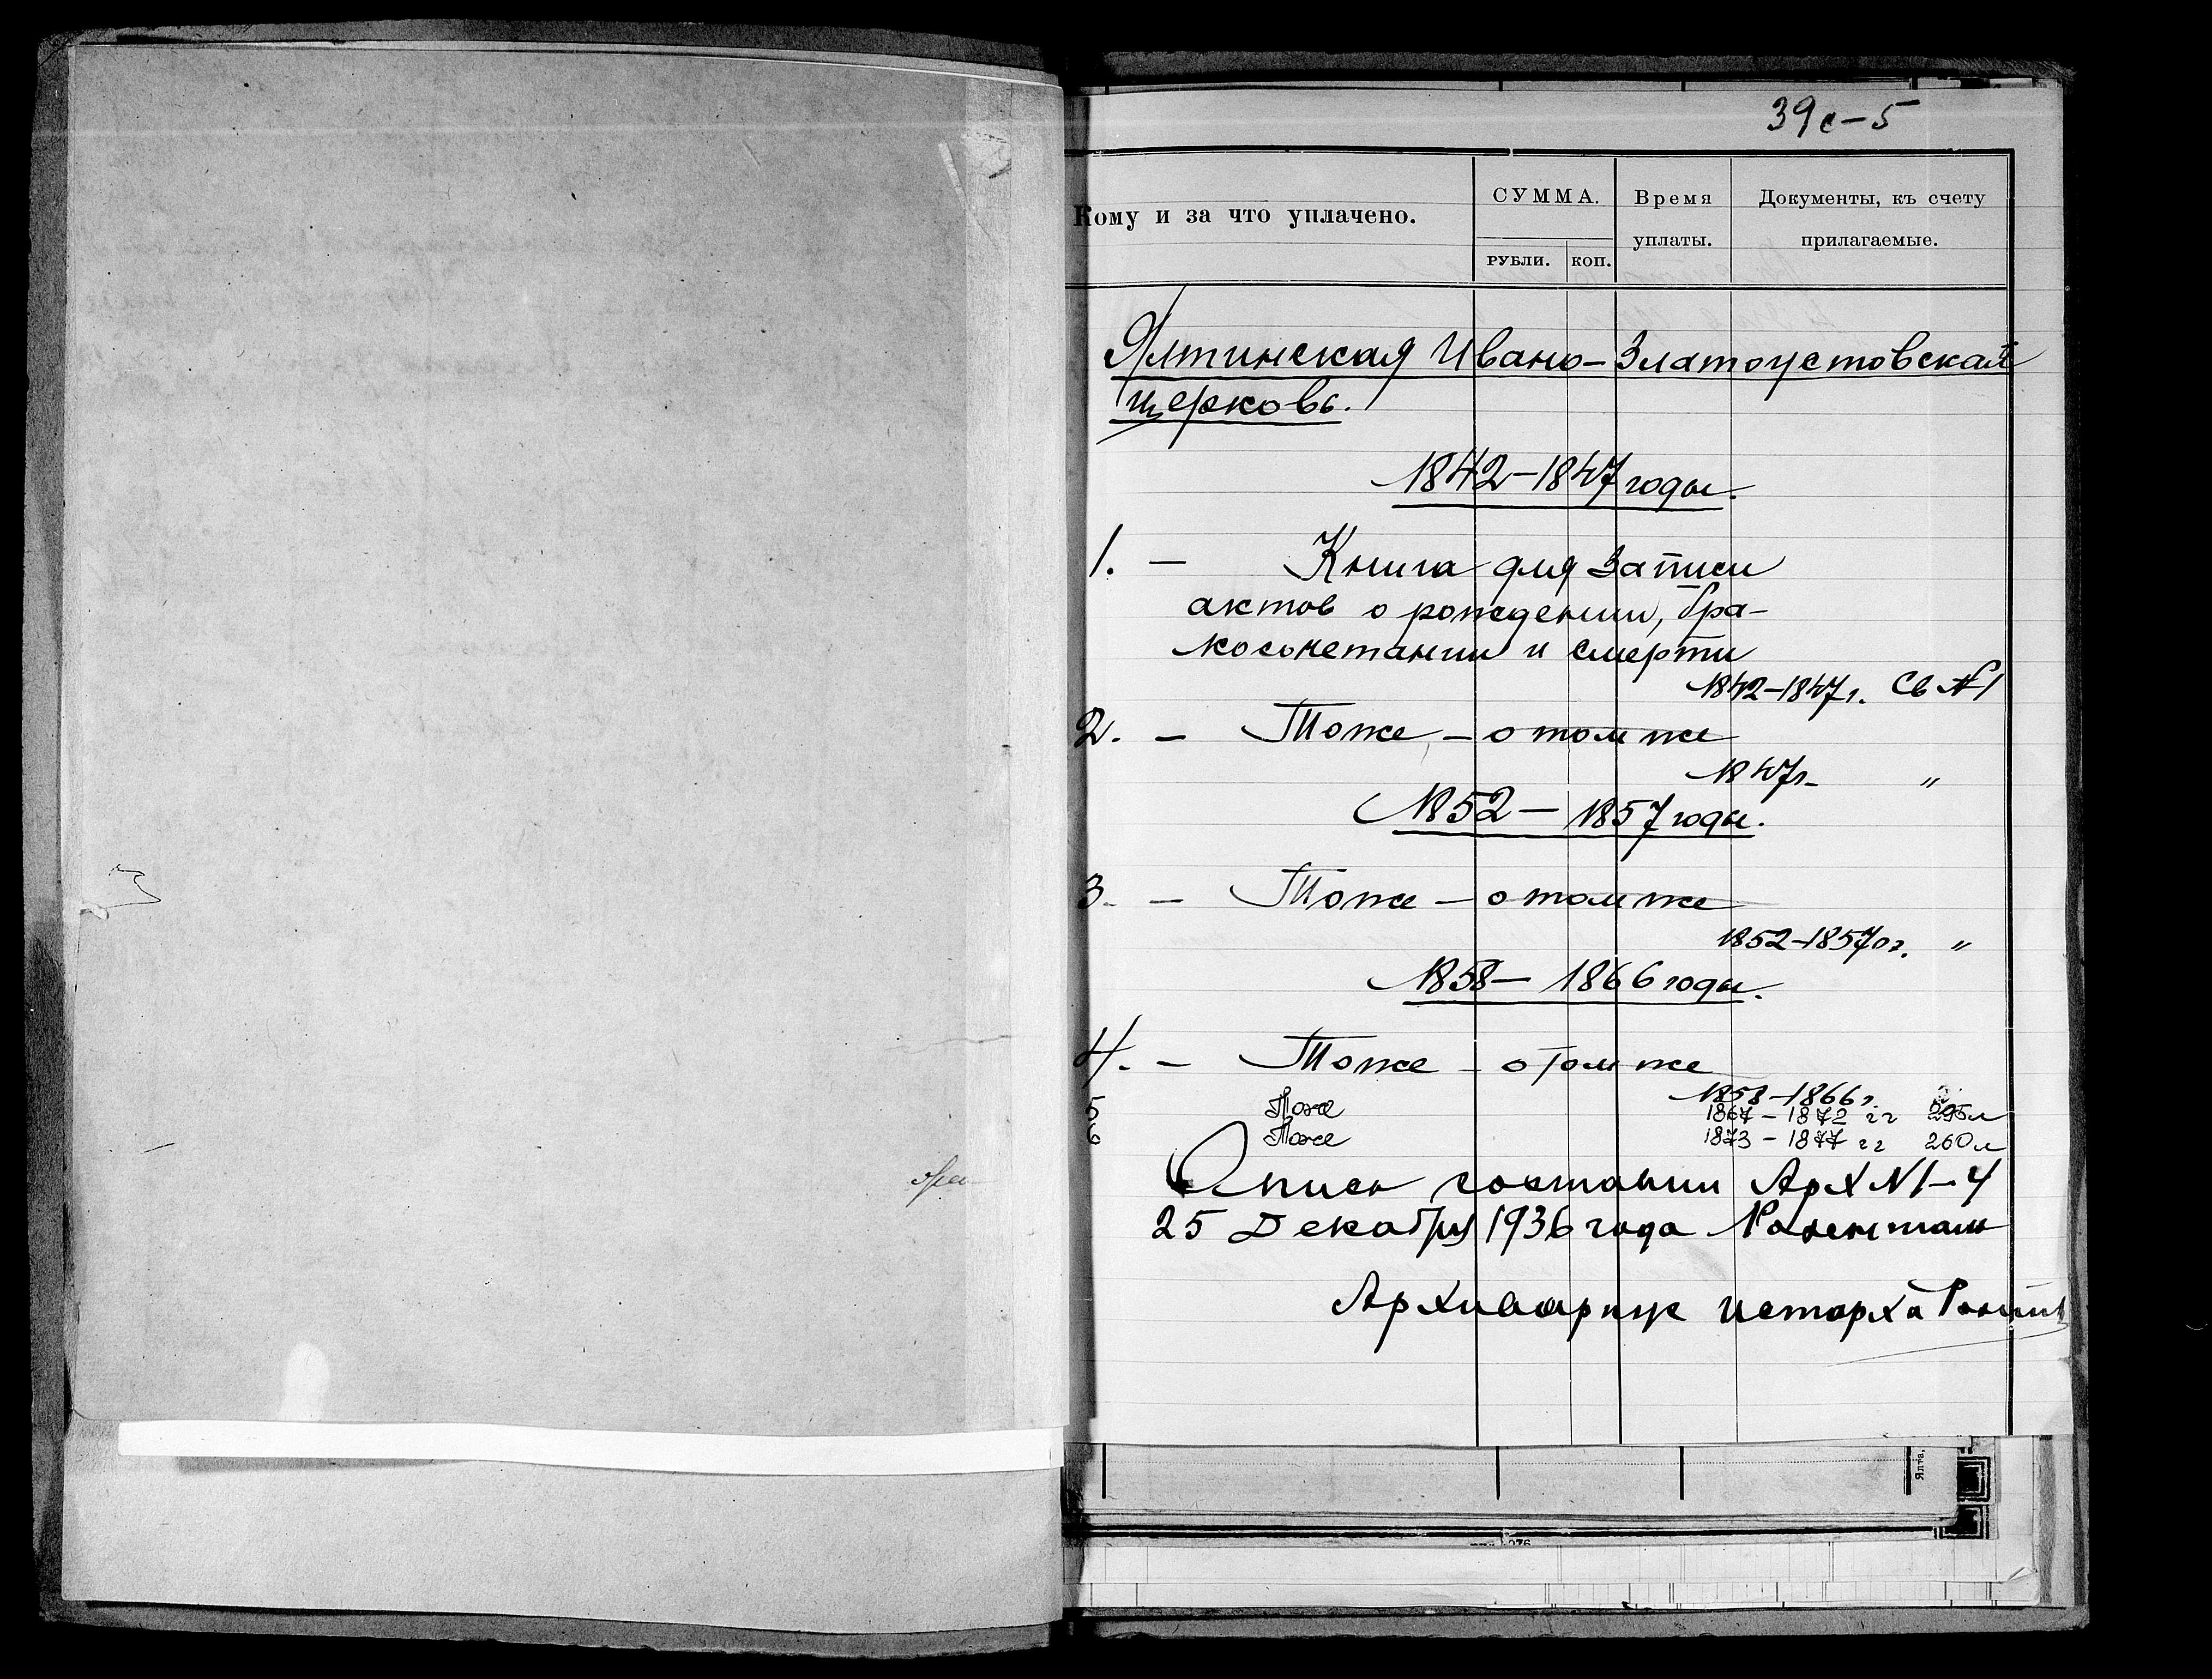 39с-5
Кому и за что уплачено.
СУММА.
РУБЛИ. КОП.
Время уплаты.
Документы, къ счету прилагаемые.
Ялтинская Ивано-Златоустовская
церковь.
1842-1847 годы.
1. - Книга для записи
актов о рождении, бра-
косочетании и смерти
1842-1847г. Св №1
2. - Тоже - о том же
1847г. "
1852 - 1857 годы.
3. - Тоже - о том же
1852-1857гг. "
1858 - 1866 годы.
4. - Тоже - о том же
1858-1866г.
5 Тоже 1867 - 1872 гг 295л
6 Тоже 1873 - 1877 гг 260л
Опись составил Арх №1-4
25 Декабря 1936 года
Архивариус истарха
Ялта,